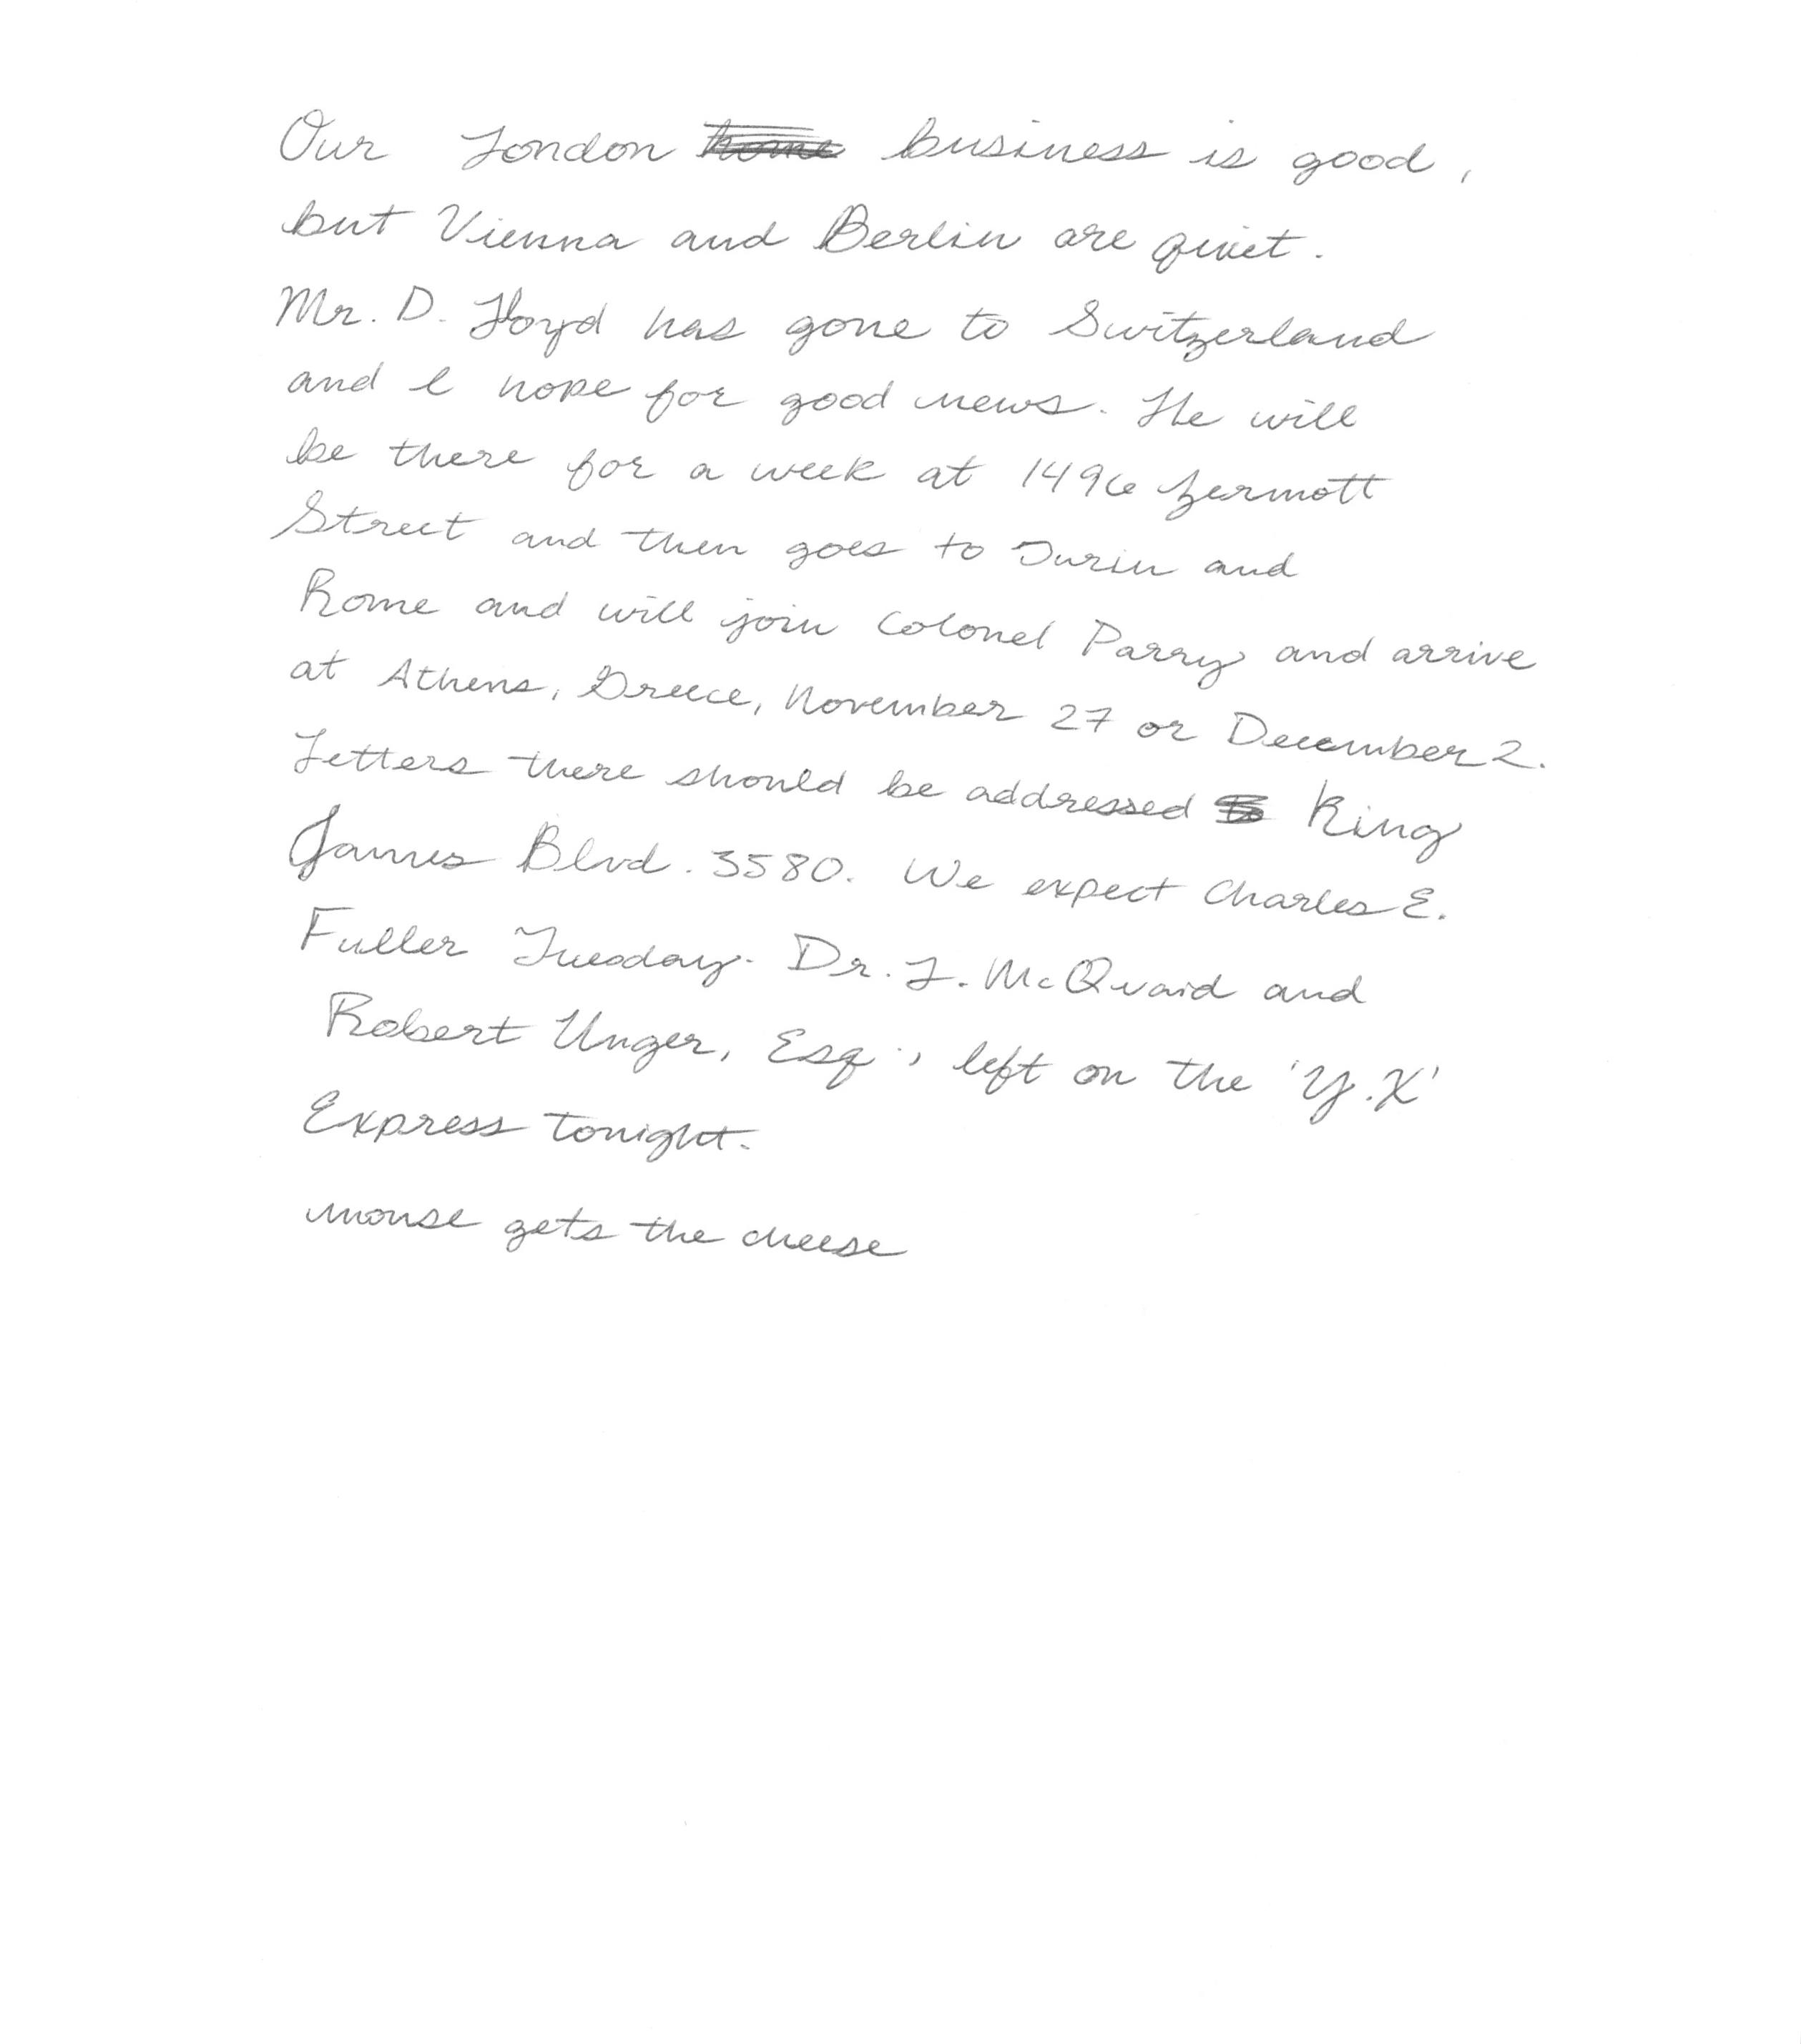 Our London home business is good,
but Vienna and Berlin are quiet.
Mr. D. Lloyd has gone to Switzerland
and I hope for good news. He will
be there for a week at 1496 Zermott
Street and then goes to Turin and
Rome and will join Colonel Parry and arrive
at Athens, Greece, November 27 or December 2.
Letters there should be addressed to King
James Blvd. 3580. We expect Charles E.
Fuller Tuesday. Dr. L. McQuaid and
Robert Unger, Esq., left on the 'Y.X'
Express tonight.
mouse gets the cheese